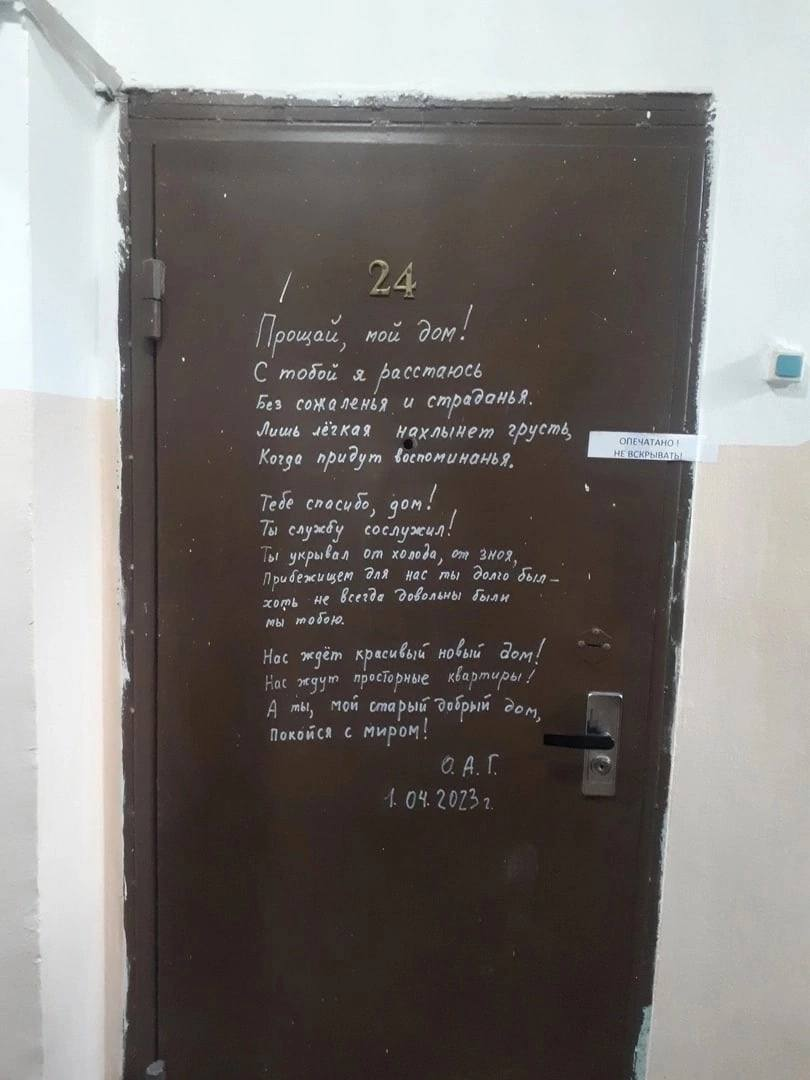 24
Прощай, мой дом!
С тобой я расстаюсь
Без сожаленья и страданья.
Лишь лёгкая нахлынет грусть,
Когда придут воспоминанья.
ОПЕЧАТАНО!
НЕ ВСКРЫВАТЬ!
Тебе спасибо, дом!
Ты службу сослужил!
Ты укрывал от холода, от зноя,
Прибежищем для нас ты долго был –
хоть не всегда довольны были
мы тобою.
Нас ждёт красивый новый дом!
Нас ждут просторные квартиры!
А ты, мой старый добрый дом,
Покойся с миром!
О. А. Г.
1. 04. 2023 г.